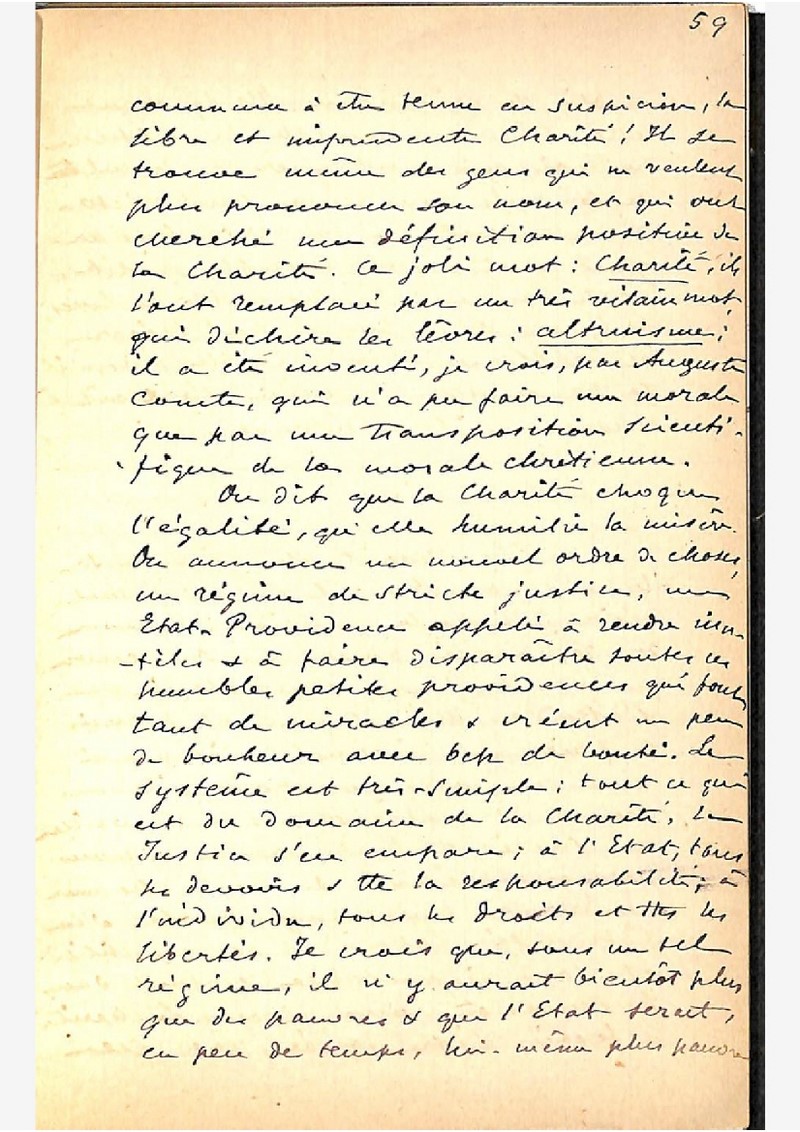 59
commence à être tenue en suspicion, la
libre et imprudente Charité ! Il se
trouve même des gens qui ne veulent
plus prononcer son nom, et qui ont
cherché une définition positive de
la Charité. Ce joli mot : Charité, ils
l'ont remplacé par un très vilain mot,
qui déchire les lèvres : altruisme ;
il a été inventé, je crois, par Auguste
Comte, qui n'a pu faire une morale
que par une transposition scienti-
fique de la morale chrétienne.
On dit que la Charité choque
l'égalité, qu'elle humilie la misère.
On annonce un nouvel ordre de choses,
un régime de stricte justice, un
Etat-Providence appelé à rendre inu-
-tiles & à faire disparaître toutes ces
humbles petites providences qui font
tant de miracles & créent un peu
de bonheur avec bcp de bonté. Le
système est très-simple : tout ce qui
est du domaine de la Charité, la
Justice s'en empare ; à l'Etat, tous
les devoirs & tte la responsabilité ; à
l'individu, tous les droits et ttes les
libertés. Je crois que, sous un tel
régime, il n'y aurait bientôt plus
que des pauvres & que l'Etat serait,
en peu de temps, lui-même plus pauvre